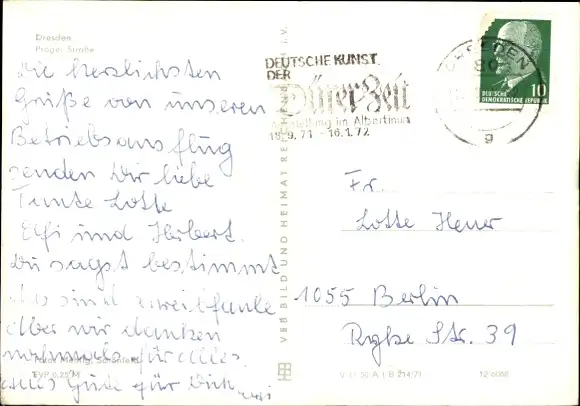 Dresden
Prager Straße
Die herzlichsten
Grüße von unseren
Betriebsausflug
senden Dir liebe
Tante Lotte
Elfi und Herbert.
Du sagst bestimmt
das sind zwei faule
Aber wir danken
nochmals für alles
alles Gute für Dich
EVP 0,25 M
VEB BILD UND HEIMAT REICHENBACH i. V.
DEUTSCHE KUNST
DER
Dürer-Zeit
Ausstellung im Albertinum
18.9.71 - 16.1.72
DRESDEN
80
g
10
DEUTSCHE
DEMOKRATISCHE REPUBLIK
Fr.
Lotte Heuer
1055 Berlin
Rykestr. 39
V 11 50 A 1 B 214/71